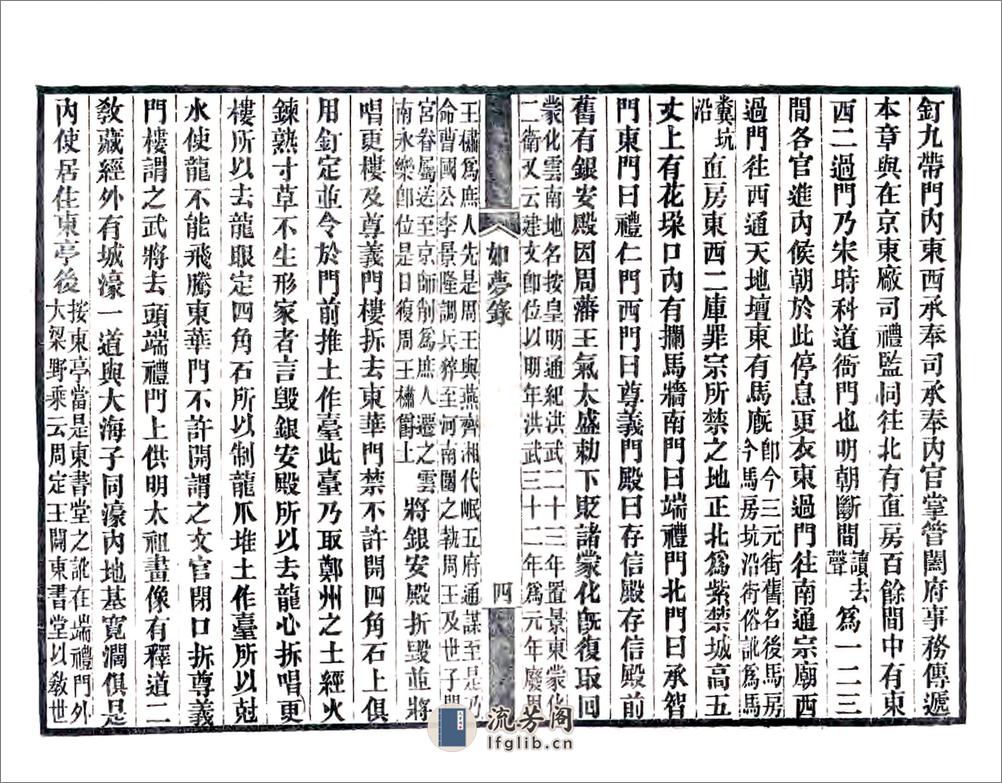 釘九帶門內東西承奉司承奉內官掌管闔府事務傳遞
本章與在京東廠司禮監同往北有直房百餘間中有東
西二過門乃宋時科道衙門也明朝斷間讀去聲爲一二三
間各官進內候朝於此停息更衣東過門往南通宗廟西
過門往西通天地壇東有馬廐卽今三元街舊名後馬房今馬房坑沿街俗訛爲馬
糞坑沿直房東西二庫罪宗所禁之地正北爲紫禁城高五
丈上有花垜口內有攔馬牆南門曰端禮門北門曰承智
門東門曰禮仁門西門曰尊義門殿曰存信殿存信殿前
舊有銀安殿因周藩王氣太盛勅下貶諸蒙化旣復取回
蒙化雲南地名按皇明通紀洪武二十三年置景東蒙化
二衛又云建文卽位以明年洪武三十二年爲元年廢周
如夢錄
四
王橚爲庶人先是周王與燕齊湘代岷五府通謀至是乃
命曹國公李景隆調兵猝至河南圍之執周王及世子闔
宮眷屬送至京師削爲庶人遷之雲
南永樂卽位是日復周王橚爵土將銀安殿折毀並將
唱更樓及尊義門樓拆去東華門禁不許開四角石上俱
用釘定並令於門前推土作臺此臺乃取鄭州之土經火
鍊熟寸草不生形家者言毀銀安殿所以去龍心拆唱更
樓所以去龍眼定四角石所以制龍爪堆土作臺所以尅
水使龍不能飛騰東華門不許開謂之文官閉口折尊義
門樓謂之武將去頭端禮門上供明太祖畫像有釋道二
敎藏經外有城濠一道與大海子同濠內地基寬濶俱是
內使居住東亭後按東亭當是東書堂之訛在端禮門外大梁野乘云周定王闢東書堂以敎世
流芳阁
lfglib.cn